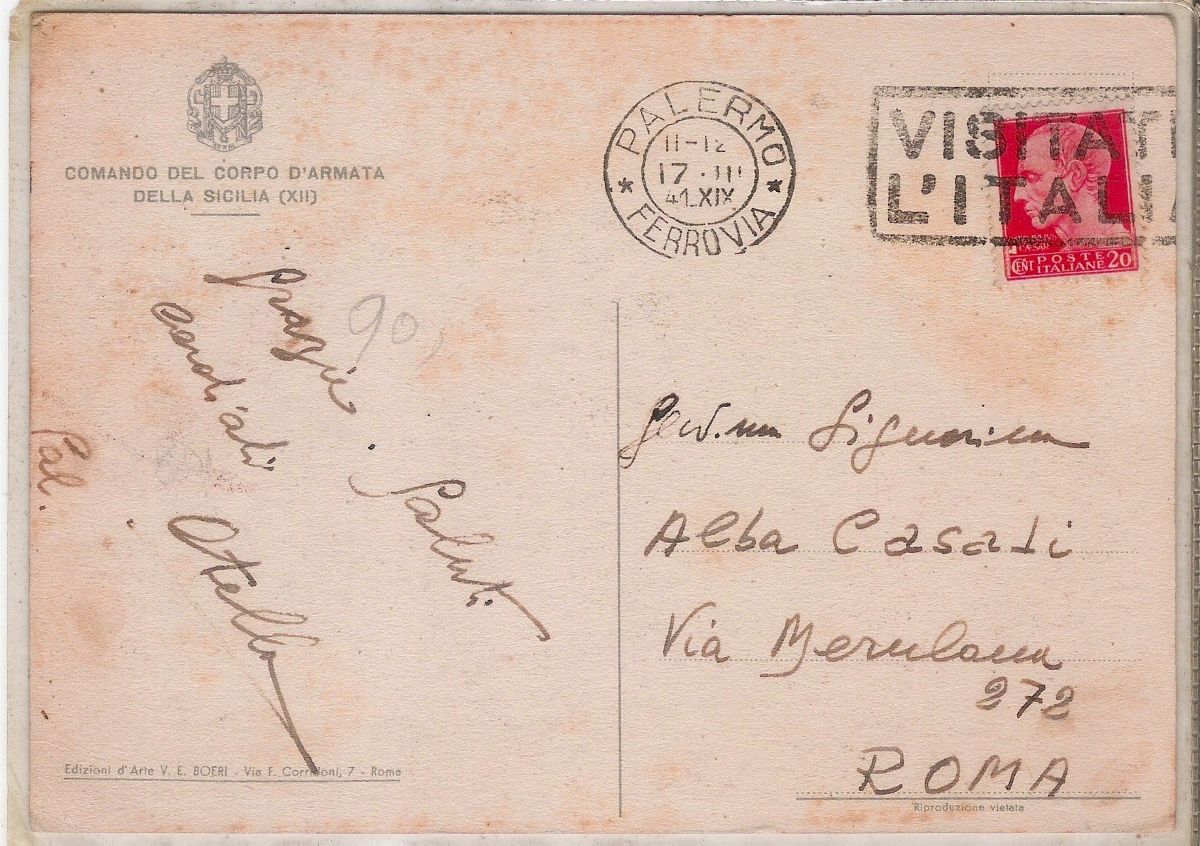 COMANDO DEL CORPO D'ARMATA
DELLA SICILIA (XII)
PALERMO
11-12
17·III
41.XIX
FERROVIA
VISITATE
L'ITALIA
CAESAR
CENT POSTE 20
ITALIANE
90
grazie. Saluti
cordiali
Otello
Pal.
Signorina
Alba Casati
Via Merulana
272
ROMA
Edizioni d'Arte V. E. BOERI - Via F. Corridoni, 7 - Rome
Riproduzione vietata